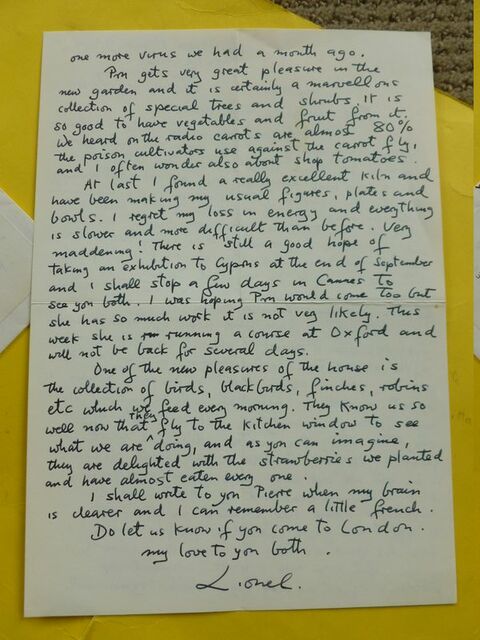 one more virus we had a month ago.
Prn gets very great pleasure in the
new garden and it is certainly a marvellous
collection of special trees and shrubs It is
so good to have vegetables and fruit from it.
We heard on the radio carrots are almost 80%
the poison cultivators use against the carrot fly,
and I often wonder also about shop tomatoes.
At last I found a really excellent kiln and
have been making my usual figures, plates and
bowls. I regret my loss in energy and everything
is slower and more difficult than before. Very
maddening! There is still a good hope of
taking an exhibition to Cyprus at the end of September
and I shall stop a few days in Cannes To
see you both. I was hoping Prn would come too but
she has so much work it is not very likely. This
week she is running a course at Oxford and
will not be back for several days.
One of the new pleasures of the house is
the collection of birds, blackbirds, finches, robins
etc which we feed every morning. They know us so
well now that They fly to the kitchen window to see
what we are doing, and as you can imagine,
they are delighted with the strawberries we planted
and have almost eaten every one.
I shall write to you Pierre when my brain
is clearer and I can remember a little french.
Do let us know if you come to London.
my love to you both.
Lionel.